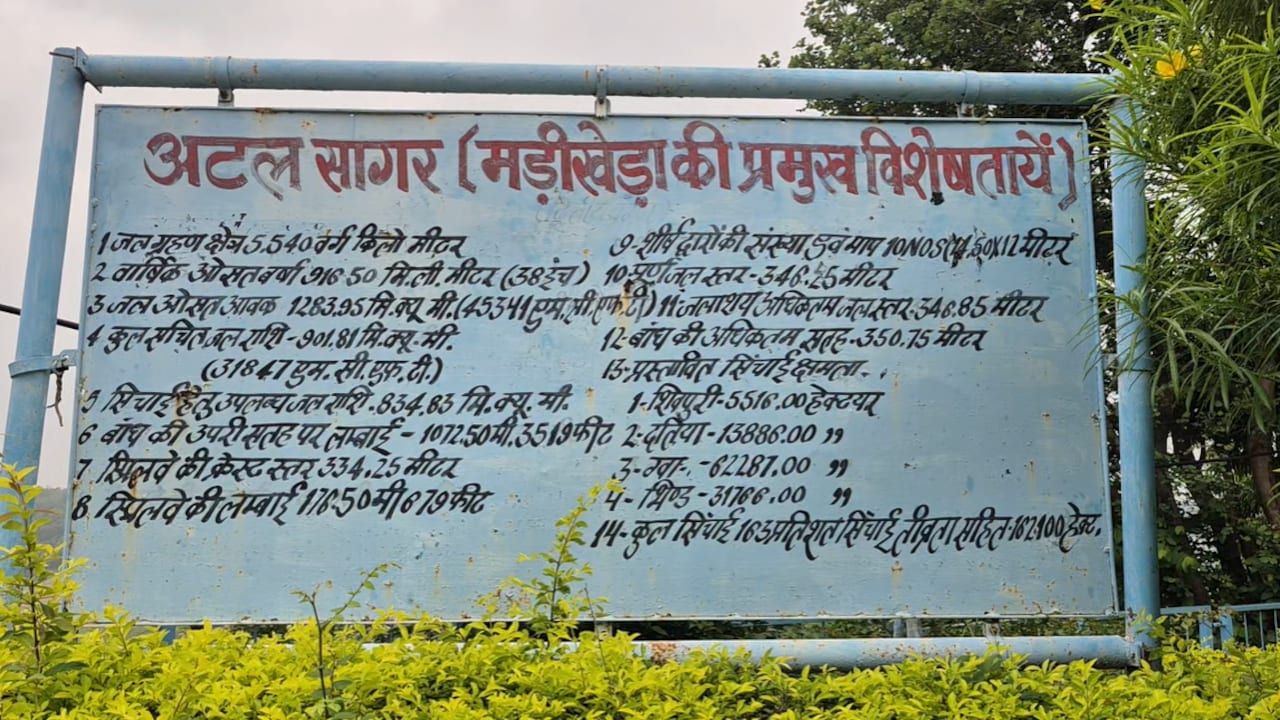 अटल सागर (मड़ीखेड़ा की प्रमुख विशेषतायें)
1 जल ग्रहण क्षेत्र 5.540 वर्ग किलो मीटर
2 वार्षिक औसत वर्षा 916.50 मि.ली. मीटर (38 इंच)
3 जल औसत आवक 1283.95 मि.क्यू.मी. (45341 एम.सी.एफ.टी)
4 कुल संचित जल राशि - 901.81 मि.क्यू.मी.
(31847 एम.सी.एफ.टी.)
5 सिंचाई हेतु उपलब्ध जल राशि - 834.83 मि.क्यू.मी.
6 बांध की उपरी सतह पर लम्बाई - 1072.50 मी. 3519 फीट
7 स्पिलवे की क्रेस्ट स्तर 334.25 मीटर
8 स्पिलवे की लम्बाई 176.50 मी 679 फीट
9 - शीर्ष द्वारों की संख्या एवं माप 10 NOS X12 मीटर
10 - पूर्ण जल स्तर - 346.25 मीटर
11 - जलाशय अधिकतम जल स्तर - 346.85 मीटर
12 - बांध की अधिकतम सतह - 350.75 मीटर
13 - प्रस्तावित सिंचाई क्षमता .
1 - शिवपुरी - 5516.00 हेक्टयर
2 - दतिया - 13886.00 ,,
3 - ग्वा - . - 62287.00 ,,
4 - भिण्ड - 31766.00 ,,
14 - कुल सिंचाई 163 प्रतिशत सिंचाई तीव्रता सहित - 162100 हेक्ट.